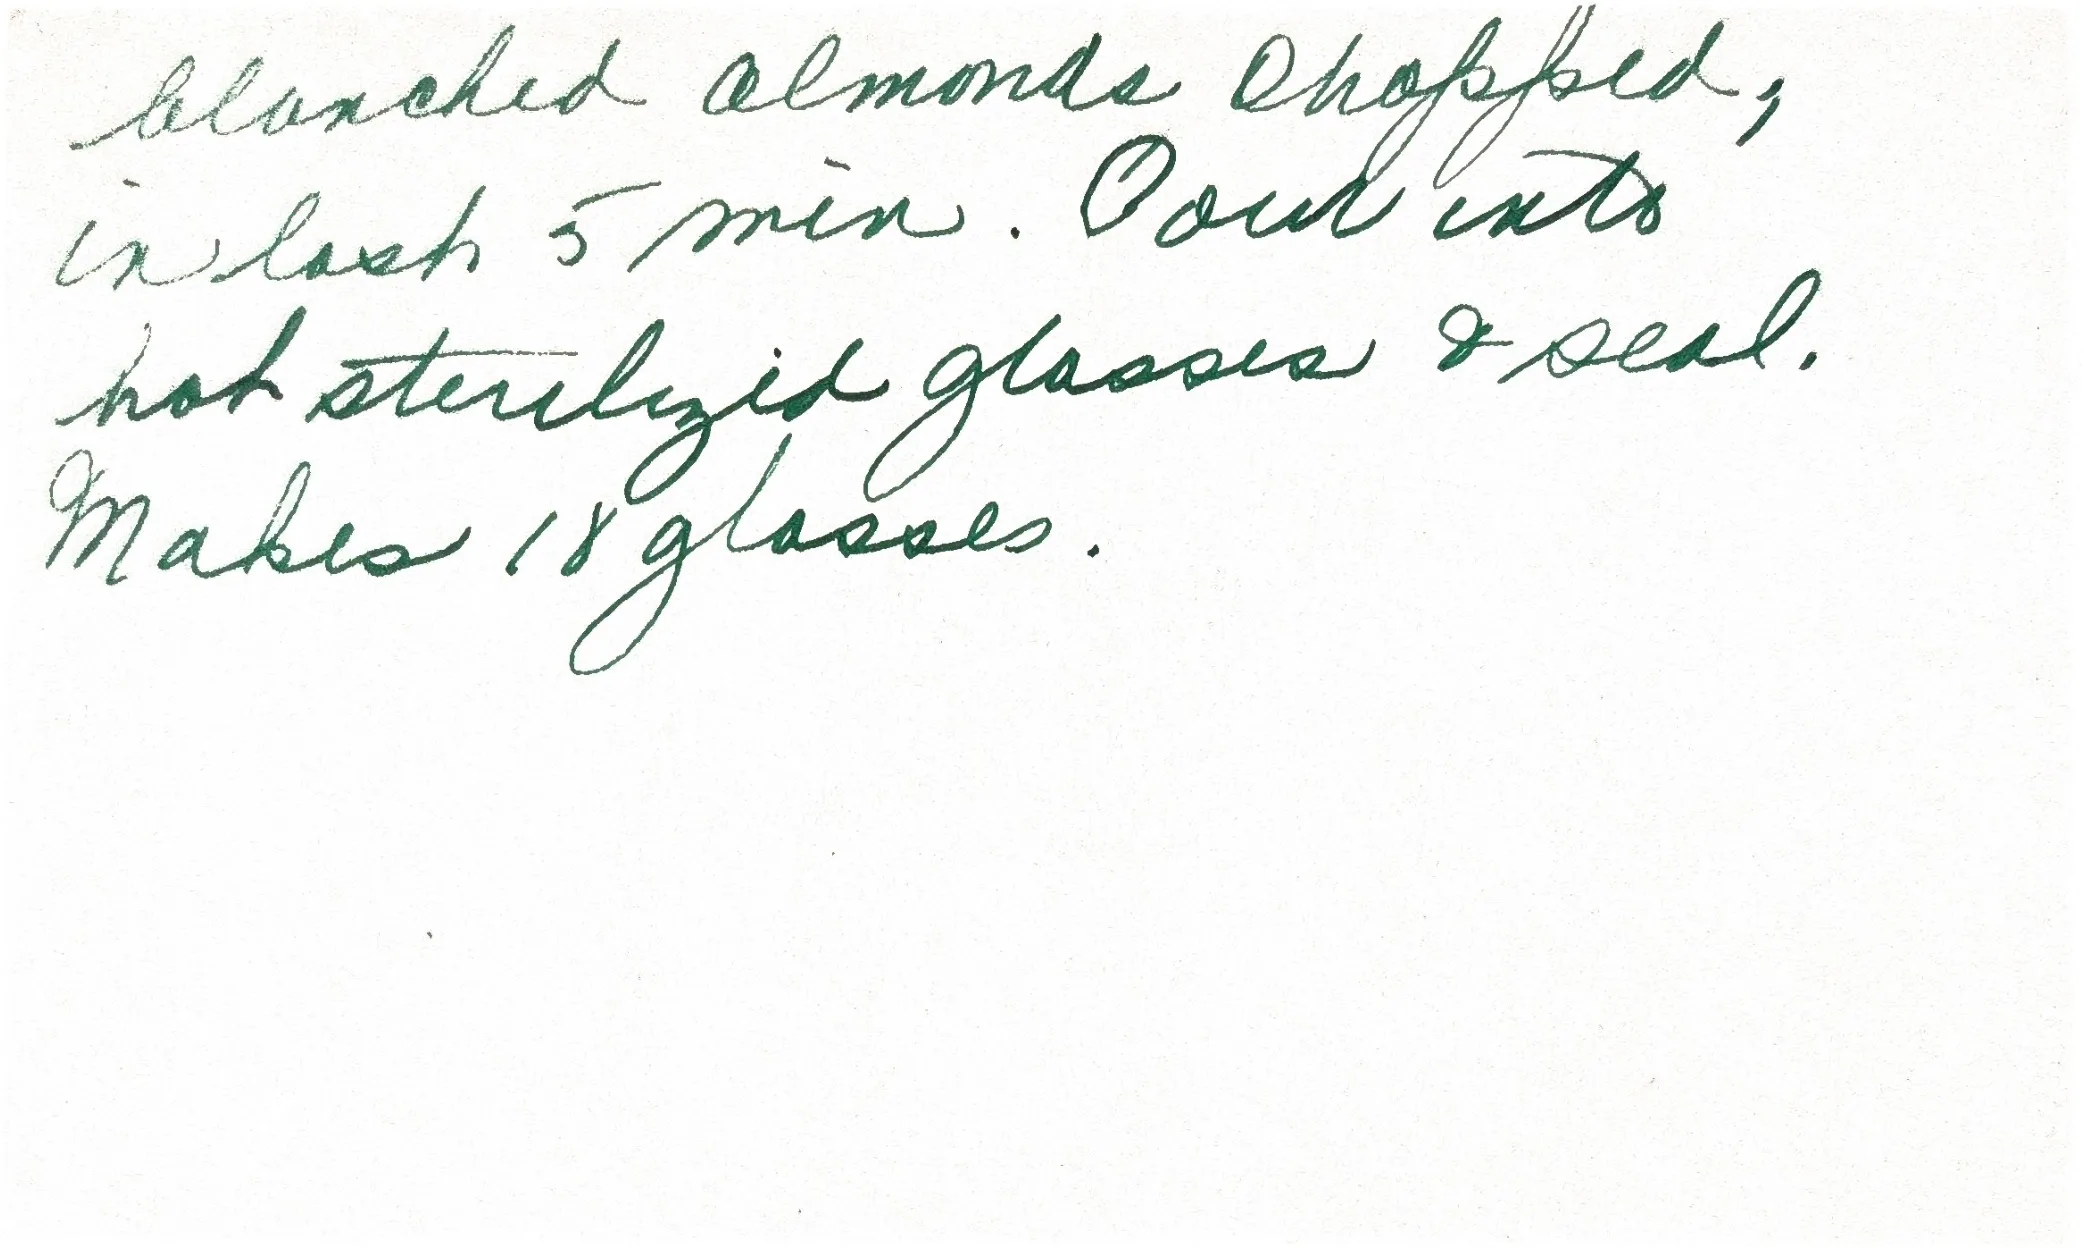 blanched almonds chopped,
in last 5 min. Pour into
hot sterilized glasses & seal.
Makes 18 glasses.